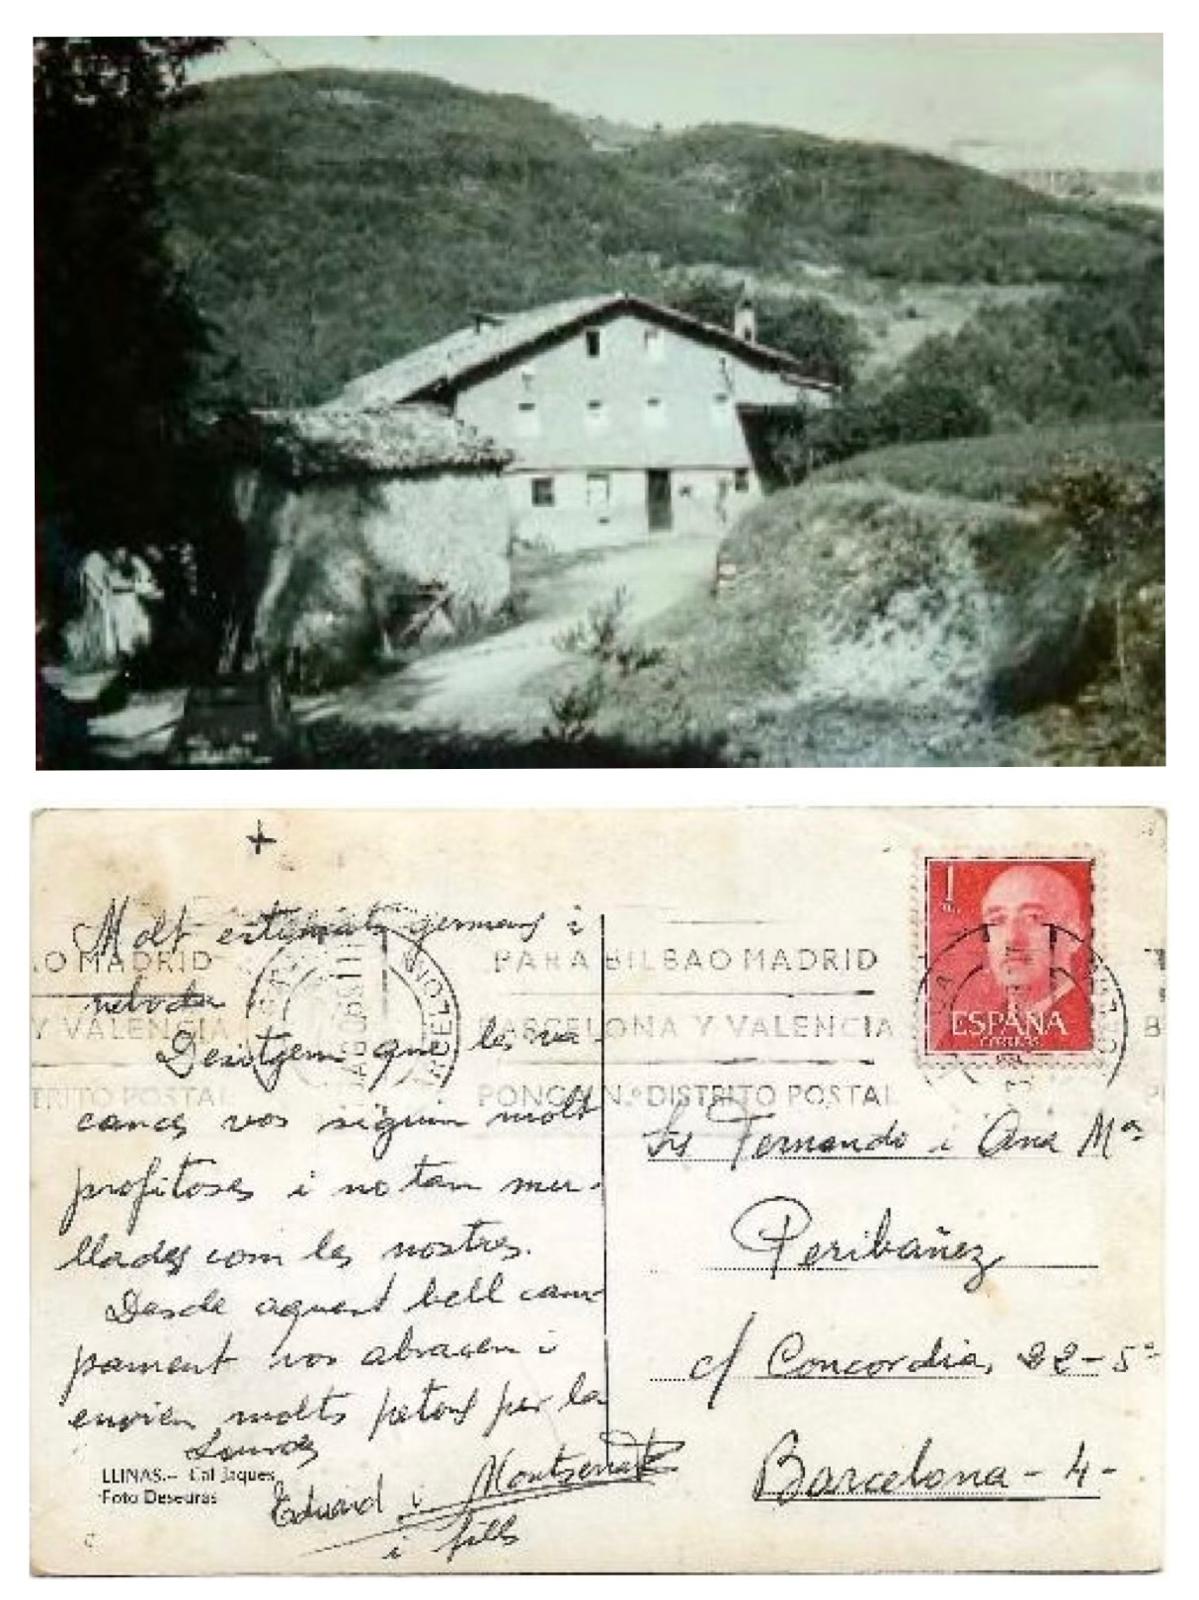 Molt estimats germans i
neboda
Desitgem que les va-
cances vos siguin molt
profitoses i no tan mu-
llades com les nostres.
Desde aquest bell cam-
pament vos abracem i
enviem molts petons per la
Lourdes
Eduard i Montserrat
i fills
LLINAS.- Cal Jaques
Foto Deseuras
1
ESPAÑA
CORREOS
PARA BILBAO MADRID
BARCELONA Y VALENCIA
PONGA N.º DISTRITO POSTAL
O MADRID
Y VALENCIA
TRITO POSTAL
Srs Fernando i Ana Mª
Peribañez
c/ Concordia, 22-5º
Barcelona - 4 -